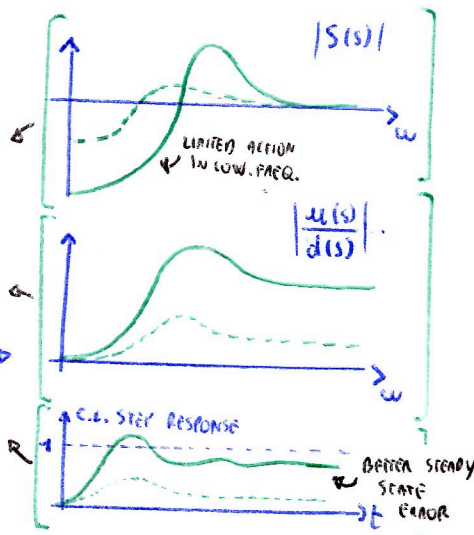 |S(s)|
ω
LIMITED ACTION
IN LOW. FREQ.
|u(s)/d(s)|.
ω
C.L. STEP RESPONSE
1
BETTER STEADY
STATE
ERROR
t